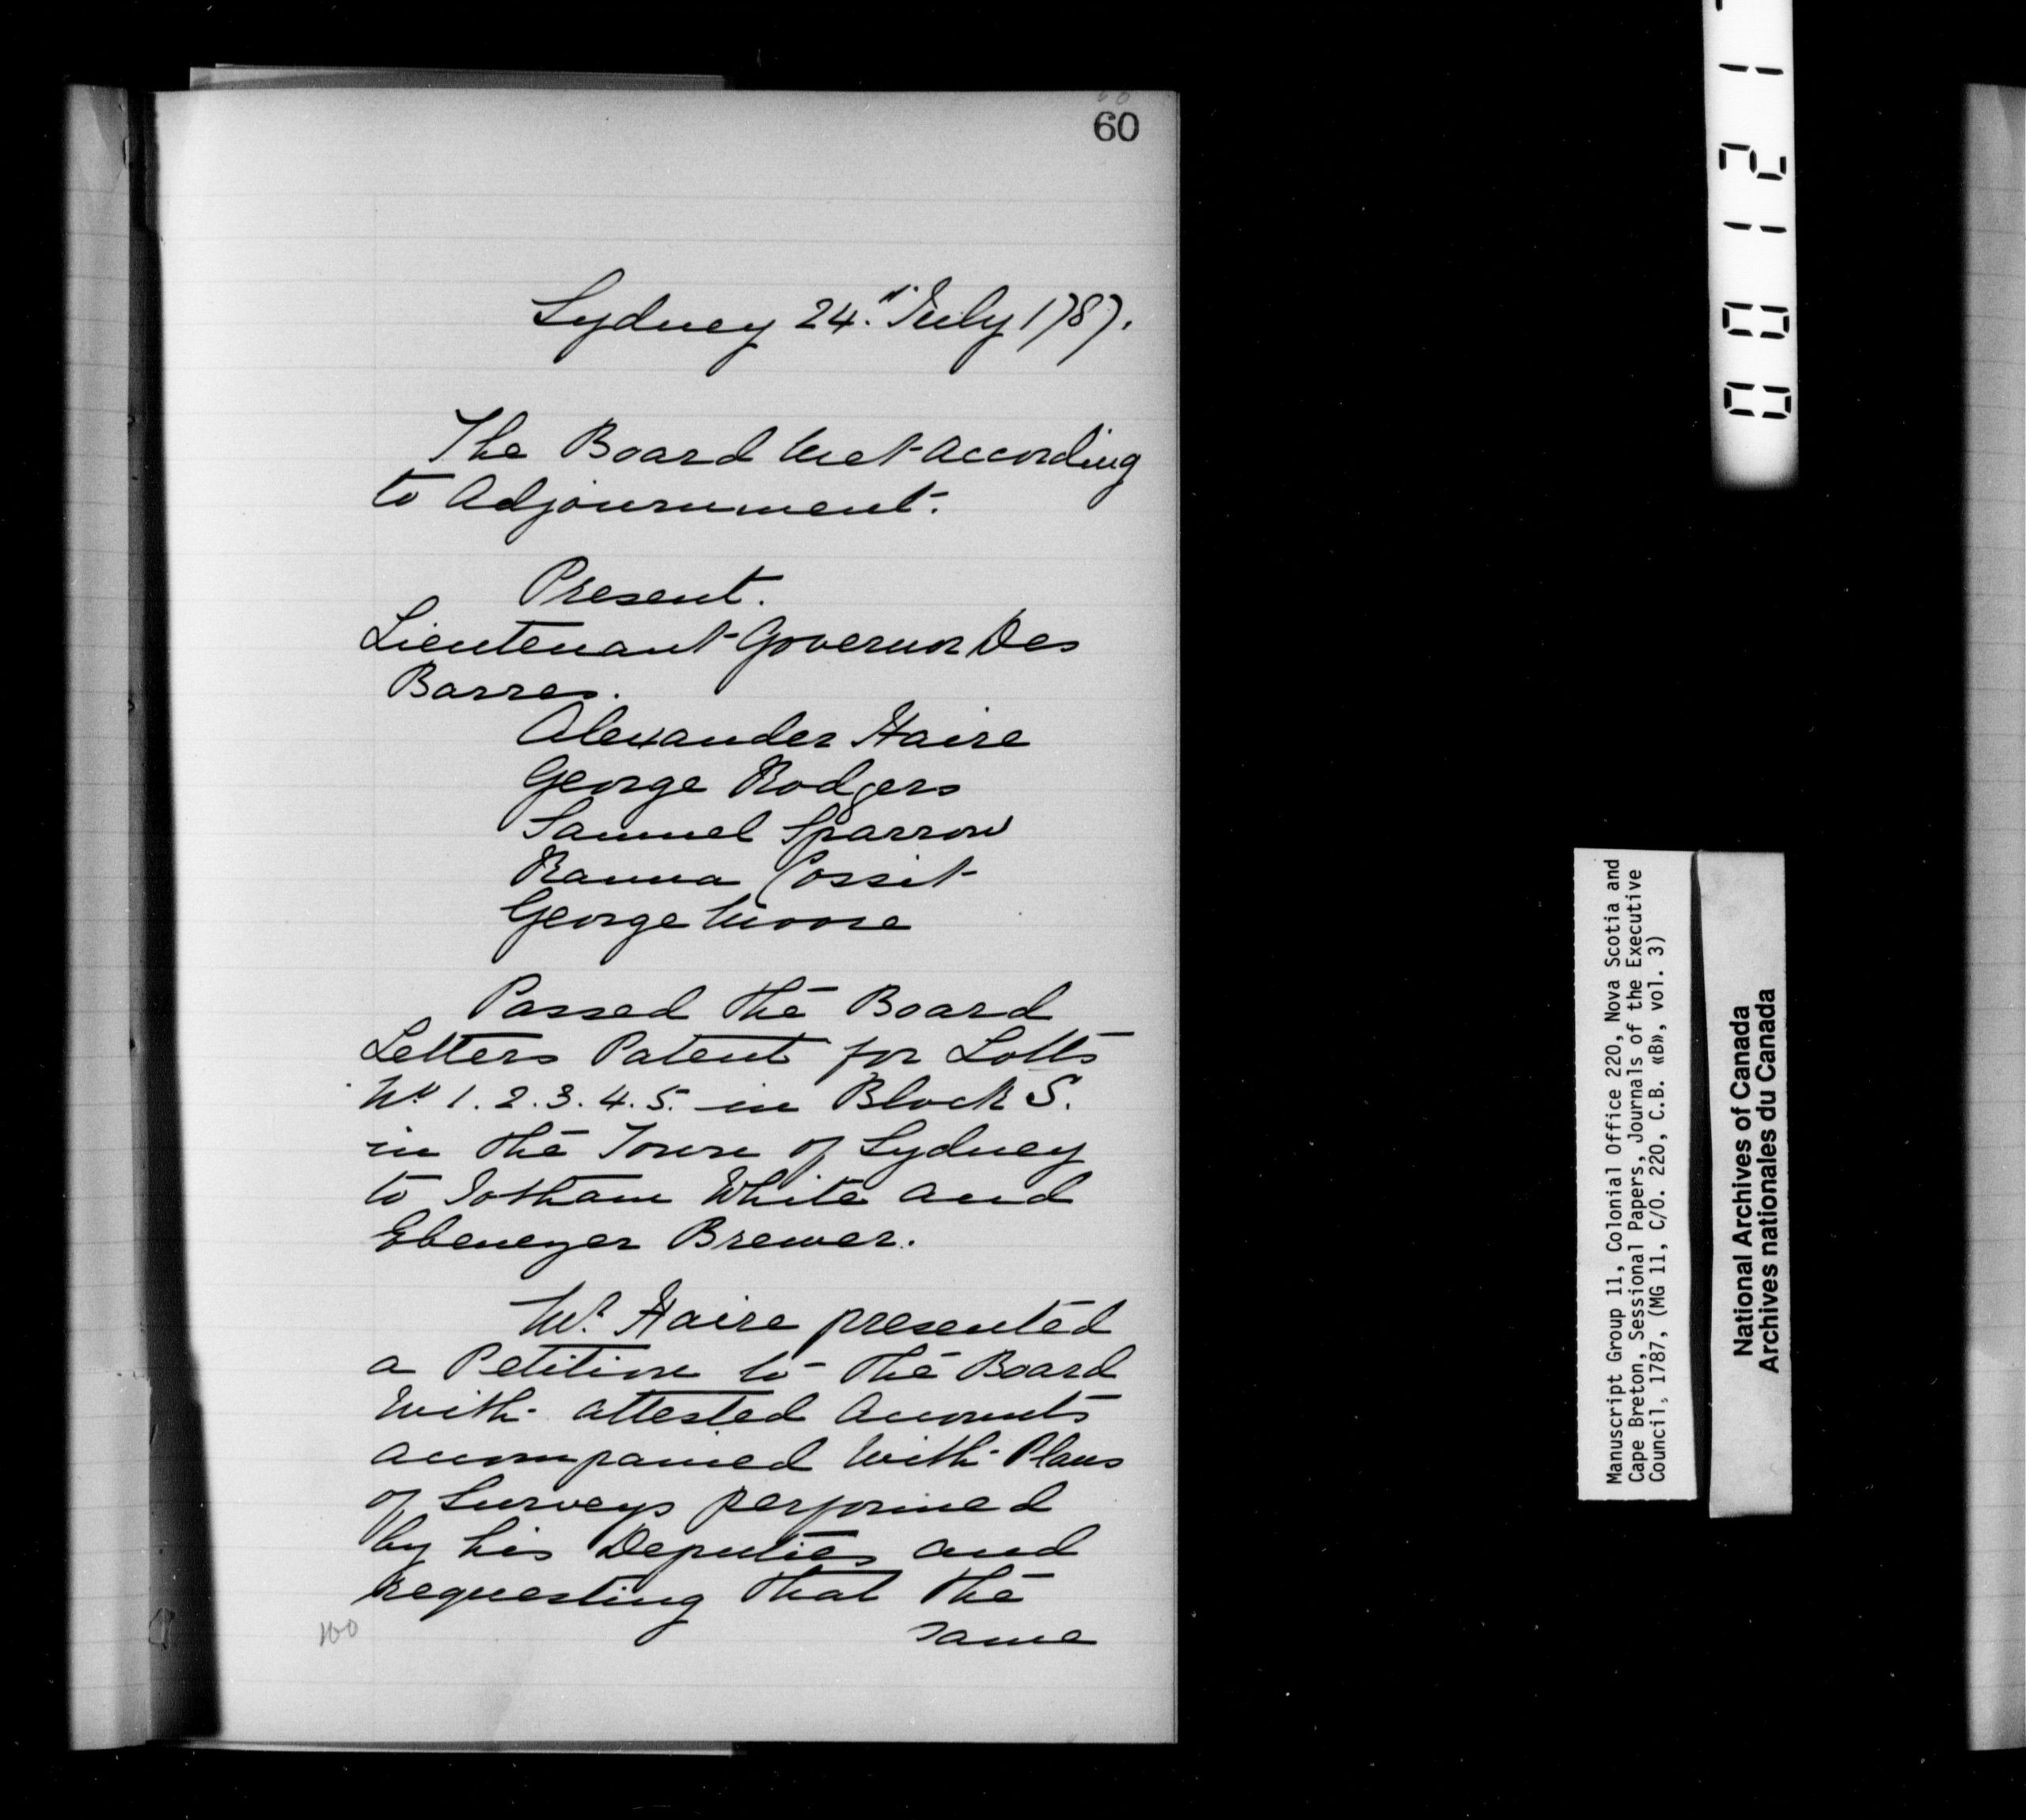 60
60
Sydney 24.th July 1787.
The Board Met according
to Adjournment.
Present.
Lieutenant Governor Des
Barres.
Alexander Haire
George Rodgers
Samuel Sparrow
Ranna Cossit
George Moore
Passed the Board
Letters Patent for Lotts
No. 1. 2. 3. 4. 5. in Block S.
in the Town of Sydney
to Jotham White and
Ebenezer Brewer.
Mr. Haire presented
a Petition to the Board
With attested Accounts
accompanied With Plans
of Surveys performed
by his Deputies and
requesting that the
same
100
00121
Manuscript Group 11, Colonial Office 220, Nova Scotia and
Cape Breton, Sessional Papers, Journals of the Executive
Council, 1787, (MG 11, C/O. 220, C.B. «B», vol. 3)
National Archives of Canada
Archives nationales du Canada